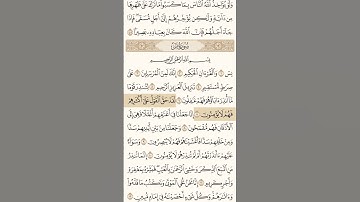 وَلَوْ يُؤَاخِذُ اللَّهُ النَّاسَ بِمَا كَسَبُوا مَا تَرَكَ عَلَىٰ ظَهْرِهَا
مِن دَابَّةٍ وَلَٰكِن يُؤَخِّرُهُمْ إِلَىٰ أَجَلٍ مُّسَمًّى فَإِذَا
جَاءَ أَجَلُهُمْ فَإِنَّ اللَّهَ كَانَ بِعِبَادِهِ بَصِيرًا
سُورَةُ يس
بِسْمِ اللَّهِ الرَّحْمَٰنِ الرَّحِيمِ
يس وَالْقُرْآنِ الْحَكِيمِ إِنَّكَ لَمِنَ الْمُرْسَلِينَ عَلَىٰ
صِرَاطٍ مُّسْتَقِيمٍ تَنزِيلَ الْعَزِيزِ الرَّحِيمِ لِتُنذِرَ قَوْمًا
مَّا أُنذِرَ آبَاؤُهُمْ فَهُمْ غَافِلُونَ لَقَدْ حَقَّ الْقَوْلُ عَلَىٰ أَكْثَرِهِمْ
فَهُمْ لَا يُؤْمِنُونَ إِنَّا جَعَلْنَا فِي أَعْنَاقِهِمْ أَغْلَالًا فَهِيَ إِلَى
الْأَذْقَانِ فَهُم مُّقْمَحُونَ وَجَعَلْنَا مِن بَيْنِ أَيْدِيهِمْ سَدًّا
وَمِنْ خَلْفِهِمْ سَدًّا فَأَغْشَيْنَاهُمْ فَهُمْ لَا يُبْصِرُونَ وَسَوَاءٌ
عَلَيْهِمْ أَأَنذَرْتَهُمْ أَمْ لَمْ تُنذِرْهُمْ لَا يُؤْمِنُونَ إِنَّمَا تُنذِرُ
مَنِ اتَّبَعَ الذِّكْرَ وَخَشِيَ الرَّحْمَٰنَ بِالْغَيْبِ فَبَشِّرْهُ بِمَغْفِرَةٍ
وَأَجْرٍ كَرِيمٍ إِنَّا نَحْنُ نُحْيِي الْمَوْتَىٰ وَنَكْتُبُ مَا قَدَّمُوا
وَآثَارَهُمْ وَكُلَّ شَيْءٍ أَحْصَيْنَاهُ فِي إِمَامٍ مُّبِينٍ